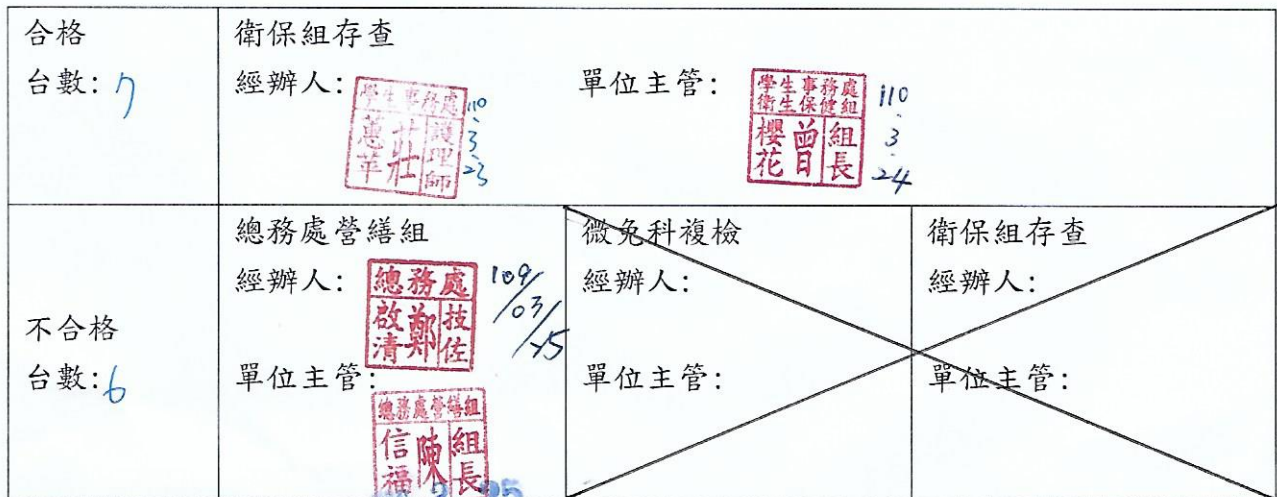 合格
台數: 7
衛保組存查
經辦人:
學生事務處
護理師
莊蕙苹
110.3.23
單位主管:
學生事務處
衛生保健組
組長
曾櫻花
110.3.24
不合格
台數: 6
總務處營繕組
經辦人:
總務處
技佐
鄭啟清
109/03/25
單位主管:
總務處營繕組
組長
陳信福
微免科複檢
經辦人:
單位主管:
衛保組存查
經辦人:
單位主管: